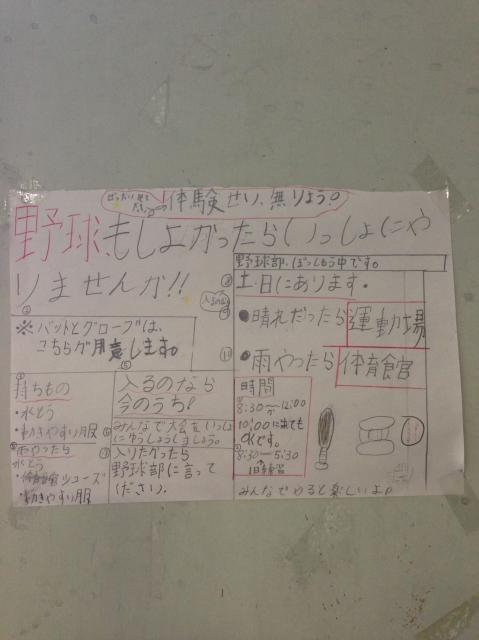 体験せい、無りょう。
野球、もしよかったらいっしょにや
りませんか!!
野球部、ぼっしゅう中です。
土日にあります。
●晴れだったら運動場
●雨やったら体育館
※バットとグローブは、
こちらが用意します。
持ちもの
・水とう
・動きやすい服
雨やったら
水とう
シューズ
・動きやすい服
入るのなら
今のうち!
みんなで大会をいっしょ
にゆうしょうしましょう。
入りたかったら
野球部に言って
ください。
時間
8:30〜12:00
10:00に来ても
OKです。
8:30〜5:30
1日練習
みんなでやると楽しいよ。